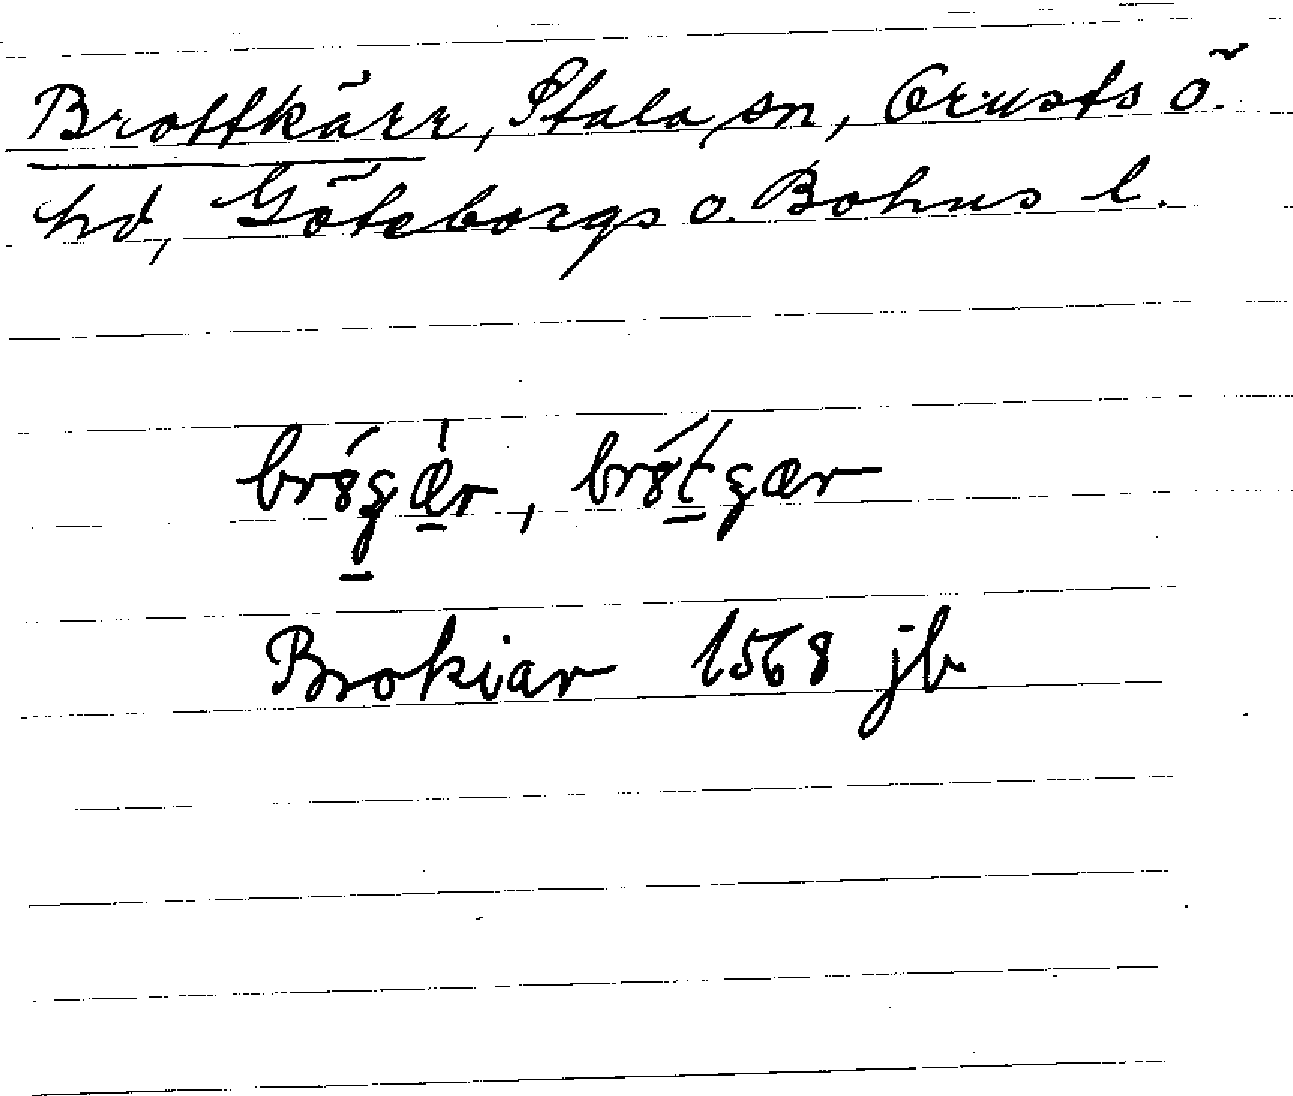 Brottkärr, Stala sn, Orusts ö.
hd, Göteborgs o. Bohus l.
br8́gæ̀r, br8́tgær
Brokiar 1568 jb